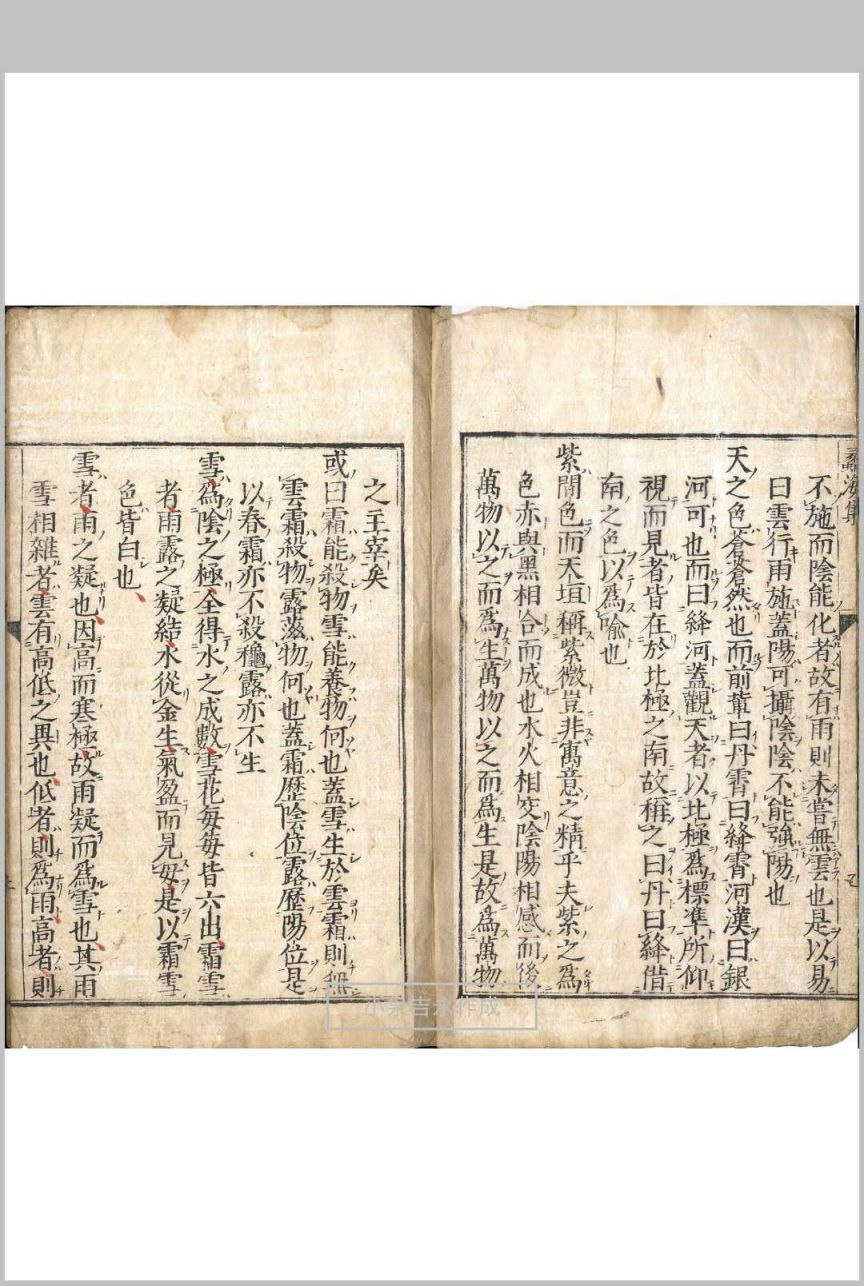 蠡海集
不施而陰能化者故有雨則未嘗無雲也是以易
曰雲行雨施蓋陽可攝陰陰不能強陽也
天之色蒼蒼然也而前輩曰丹霄曰絳霄河漢曰銀
河可也而曰絳河蓋觀天者以北極爲標準所仰
視而見者皆在於北極之南故稱之曰丹曰絳借
南之色以爲喩也
紫閒色而天垣稱紫微豈非寓意之精乎夫紫之爲
色赤與黑相合而成也水火相交陰陽相感而後
萬物以之而爲生萬物以之而爲生是故爲萬物
之主宰矣
或曰霜能殺物雪能養物何也蓋雪生於雲霜則無
雲霜殺物露滋物何也蓋霜歷陰位露歷陽位是
以春霜亦不殺穐露亦不生
雪爲陰之極全得水之成數雪花每每皆六出霜雪
者雨露之凝結水從金生氣盈而見母是以霜雪
色皆白也
雪者雨之凝也因高而寒極故雨凝而爲雪也其雨
雪相雜者雲有高低之異也低者則爲雨高者則
小泉吉永作成